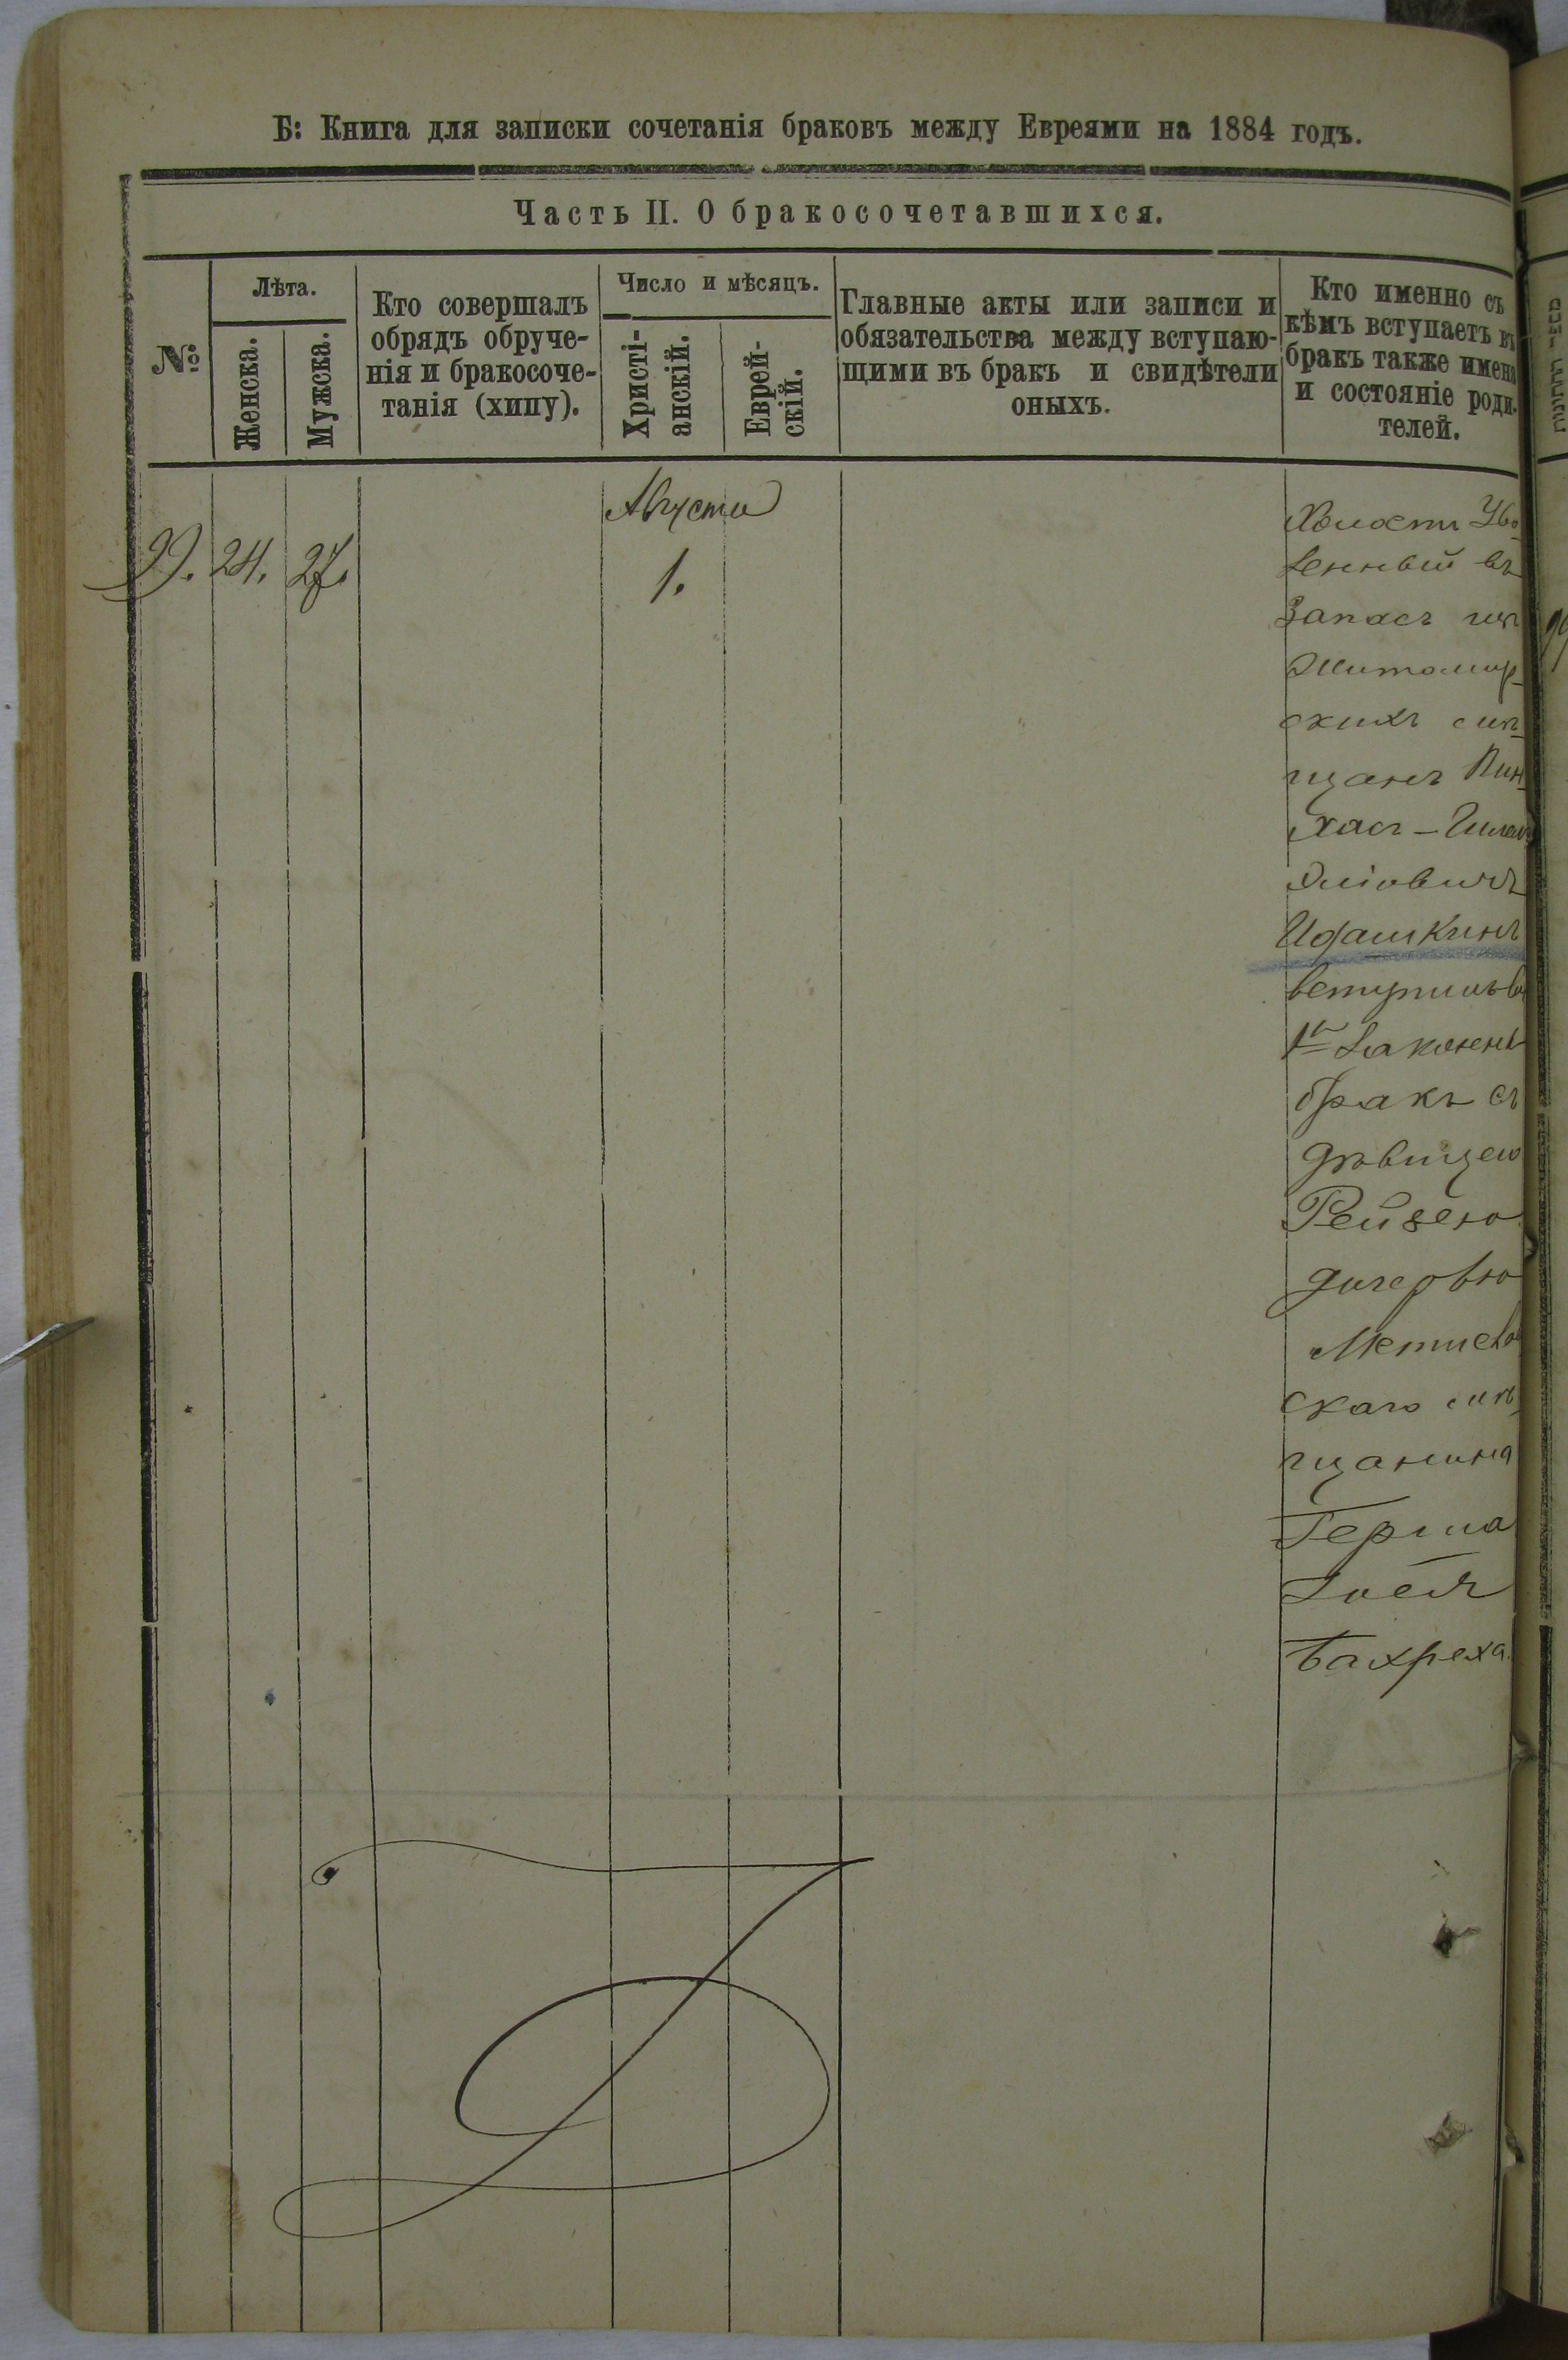 Б: Книга для записки сочетанія браковъ между Евреями на 1884 годъ.
Часть II. О бракосочетавшихся.
№
Лѣта.
Женска.
Мужска.
Кто совершалъ
обрядъ обруче-
нія и бракосоче-
танія (хипу).
Число и мѣсяцъ.
Христі-
анскій.
Еврей-
скій.
Главные акты или записи и
обязательства между вступаю-
щими въ бракъ и свидѣтели
оныхъ.
Кто именно съ
кѣмъ вступаетъ въ
бракъ также имена
и состояніе роди-
телей.
99. 24. 27.
Августа
1.
Холост Уво-
ленный въ
Запасъ изъ
Житомир-
скихъ мѣ-
щанъ Пин-
хасъ-
Эліовичъ
Идашкинъ
вступилъ въ
1й законн
бракъ съ
дѣвицею
Рейзею
дочерью
скаго мѣ-
щанина
Герша
Бахреха.